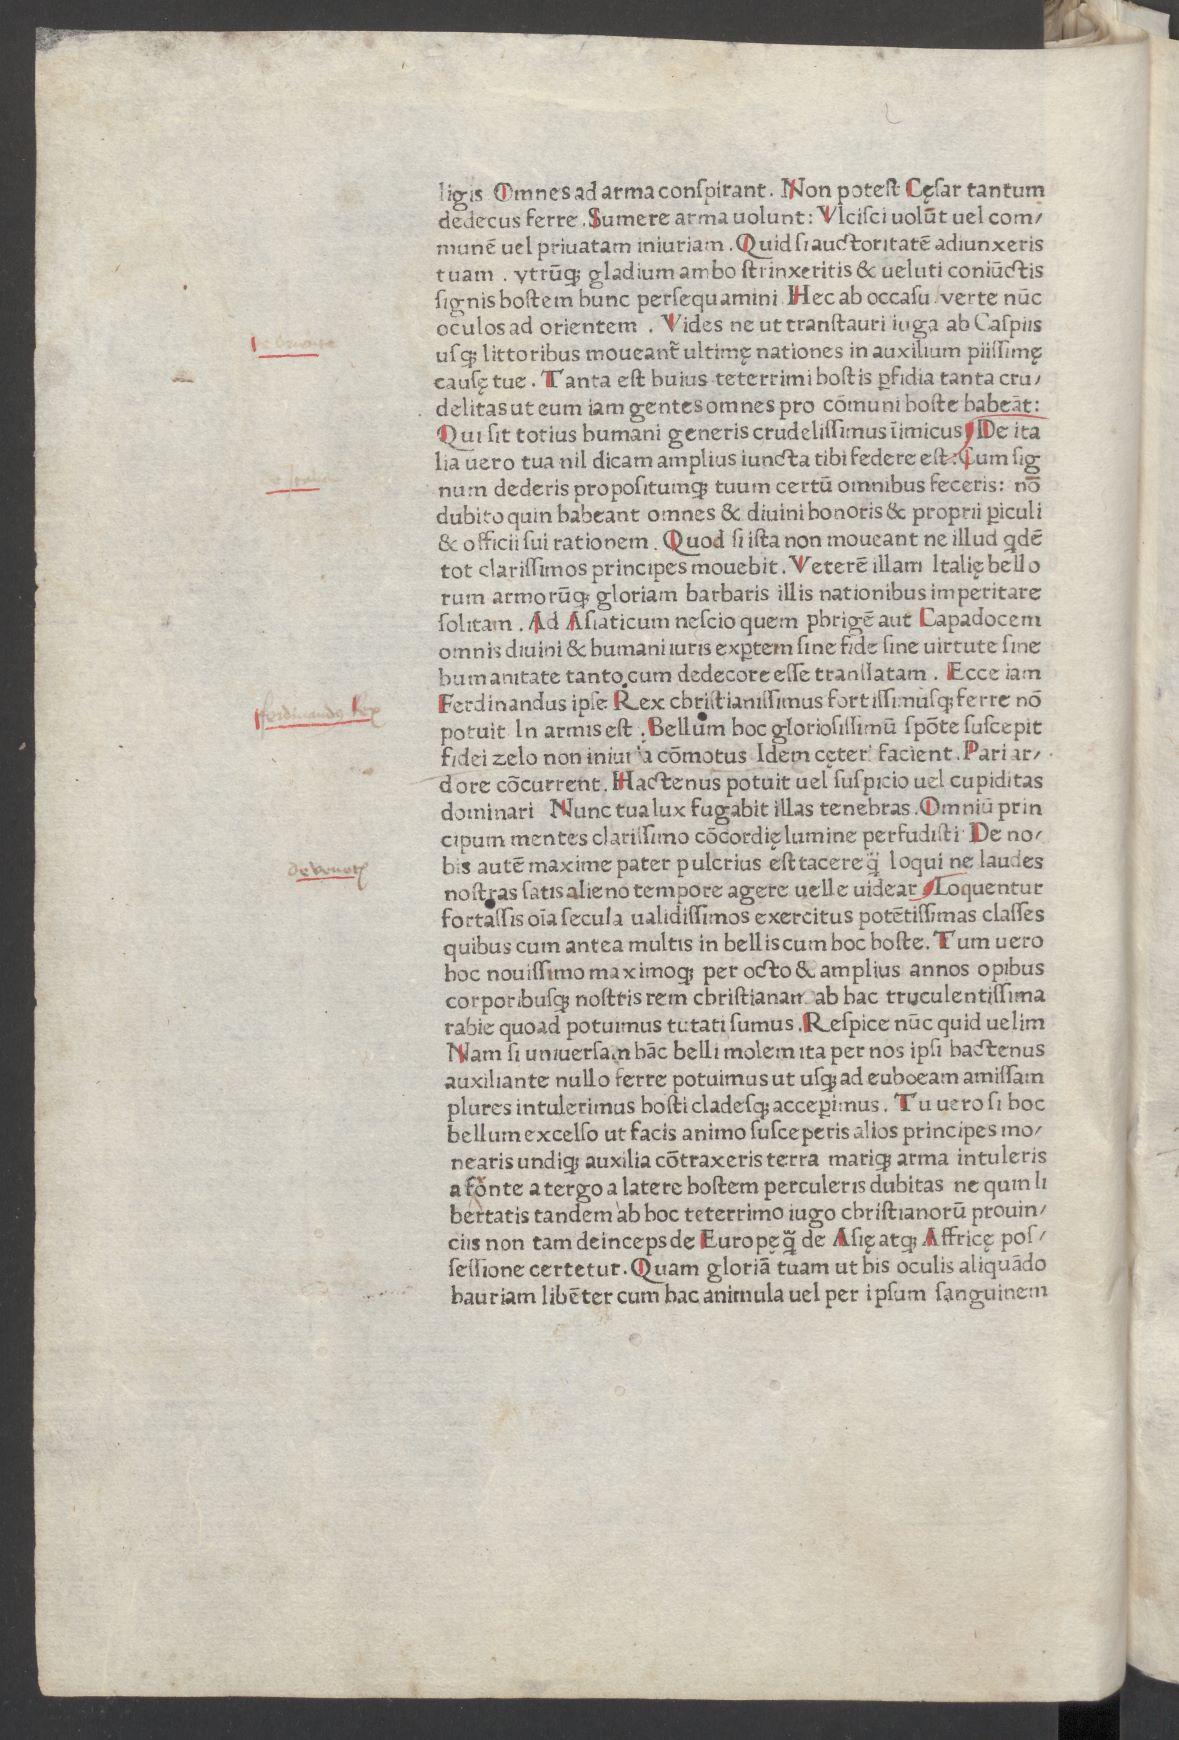 ligis Omnes ad arma conſpirant. Non poteſt Cęſar tantum
dedecus ferre. Sumere arma uolunt: Vlciſci uolūt uel com/
munē uel priuatam iniuriam. Quid ſi auctoritatē adiunxeris
tuam. ytrūqꝫ gladium ambo ſtrinxeritis & ueluti coniūctis
ſignis hoſtem hunc perſequamini Hec ab occaſu. verte nūc
oculos ad orientem. Vides ne ut tranſtauri iuga ab Caſpiis
uſqꝫ littoribus moueant̃ ultimę nationes in auxilium piiſſimę
cauſę tue. Tanta eſt huius teterrimi hoſtis ꝑfidia tanta cru/
delitas ut eum iam gentes omnes pro cōmuni hoſte habeāt:
Qui ſit totius humani generis crudeliſſimus īimicus De ita
lia uero tua nil dicam amplius iuncta tibi federe eſt: Cum ſig
num dederis propoſitumqꝫ tuum certū omnibus feceris: nō
dubito quin habeant omnes & diuini honoris & proprii ꝑiculi
& officii ſui rationem. Quod ſi iſta non moueant ne illud qdē
tot clariſſimos principes mouebit. Veterē illam Italię bello
rum armorūqꝫ gloriam barbaris illis nationibus imperitare
ſolitam. Ad Aſiaticum neſcio quem phrigē aut Capadocem
omnis diuini & humani iuris exꝑtem ſine fide ſine uirtute ſine
humanitate tanto cum dedecore eſſe tranſlatam. Ecce iam
Ferdinandus ipſe Rex chriſtianiſſimus fortiſſimuſqꝫ ferre nō
potuit In armis eſt. Bellum hoc glorioſiſſimū ſpōte ſuſcepit
fidei zelo non iniuria cōmotus Idem cęteri facient. Pari ar/
dore cōcurrent. Hactenus potuit uel ſuſpicio uel cupiditas
dominari Nunc tua lux fugabit illas tenebras. Omniū prin
cipum mentes clariſſimo cōcordię lumine perfudiſti De no/
bis autē maxime pater pulcrius eſt tacere q̄ loqui ne laudes
noſtras ſatis alieno tempore agere uelle uidear Loquentur
fortaſſis oīa ſecula ualidiſſimos exercitus potētiſſimas claſſes
quibus cum antea multis in bellis cum hoc hoſte. Tum uero
hoc nouiſſimo maximoqꝫ per octo & amplius annos opibus
corporibuſqꝫ noſtris rem chriſtianam ab hac truculentiſſima
rabie quoad potuimus tutati ſumus. Reſpice nūc quid uelim
Nam ſi uniuerſam hāc belli molem ita per nos ipſi hactenus
auxiliante nullo ferre potuimus ut uſqꝫ ad euboeam amiſſam
plures intulerimus hoſti cladeſqꝫ acceꝑimus. Tu uero ſi hoc
bellum excelſo ut facis animo ſuſceperis alios principes mo/
nearis undiqꝫ auxilia cōtraxeris terra mariqꝫ arma intuleris
a fōnte a tergo a latere hoſtem perculeris dubitas ne quin li
bertatis tandem ab hoc teterrimo iugo chriſtianorū prouin/
ciis non tam deinceps de Europę q̄ de Aſię atqꝫ Affricę poſ/
ſeſſione certetur. Quam gloriā tuam ut his oculis aliquādo
hauriam libēter cum hac animula uel per ipſum ſanguinem
ferdinandus Rex